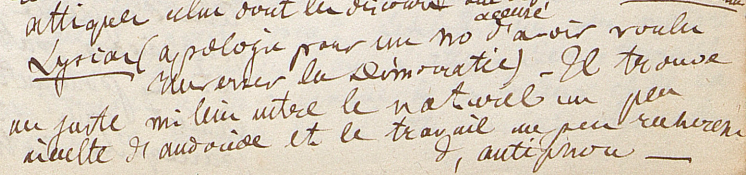 attique celui dont les discours
Lysias (apologie pour un no accusé d'avoir voulu
renverser la Démocratie) - Il trouve
un juste milieu entre le naturel un peu
inculte d'andocide et le travail un peu recherché
d'antiphon —